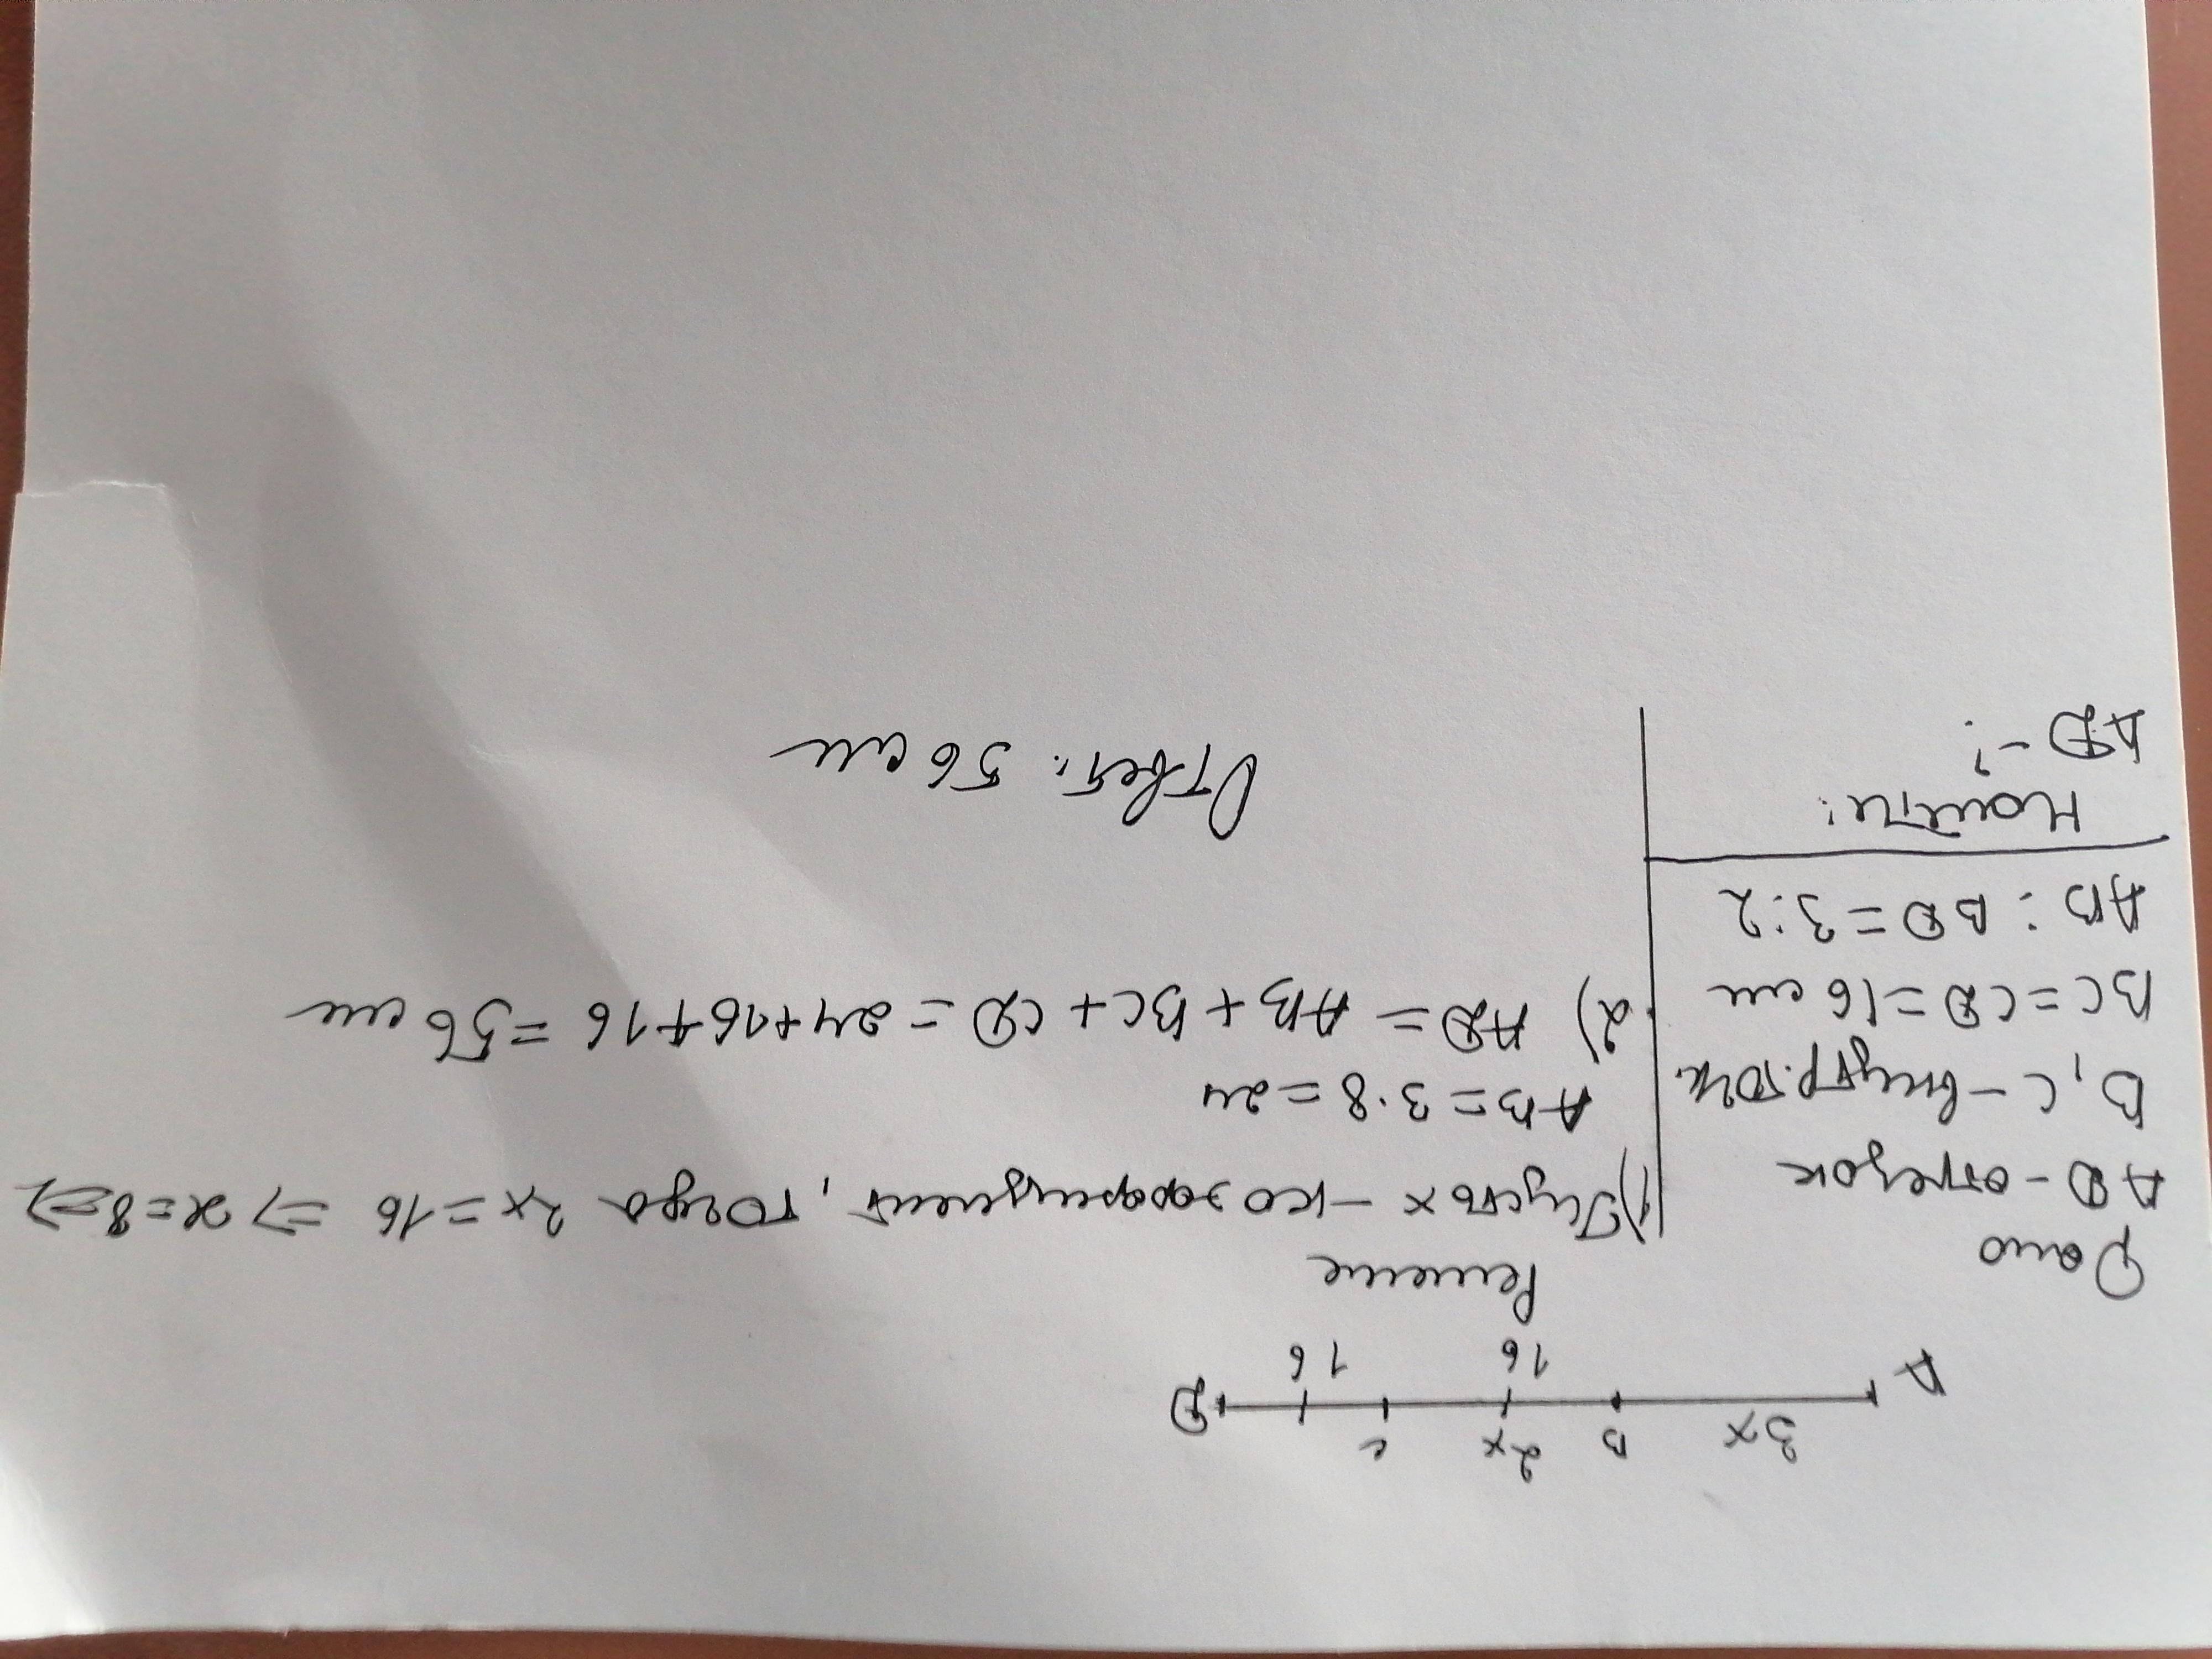 3x B 2x C
A D
16 16
Дано
AD - отрезок
B, C - внутр. точк.
BC = CD = 16 см
AB : BD = 3:2
Найти:
AD - ?
Решение
1) Пусть x - коэффициент, тогда 2x = 16 => x = 8 =>
AB = 3·8 = 24
2) AD = AB + BC + CD = 24+16+16 = 56 см
Ответ: 56 см